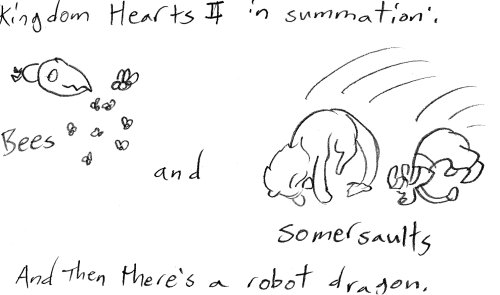 Kingdom Hearts II in summation:
Bees
and
somersaults
And then there's a robot dragon.